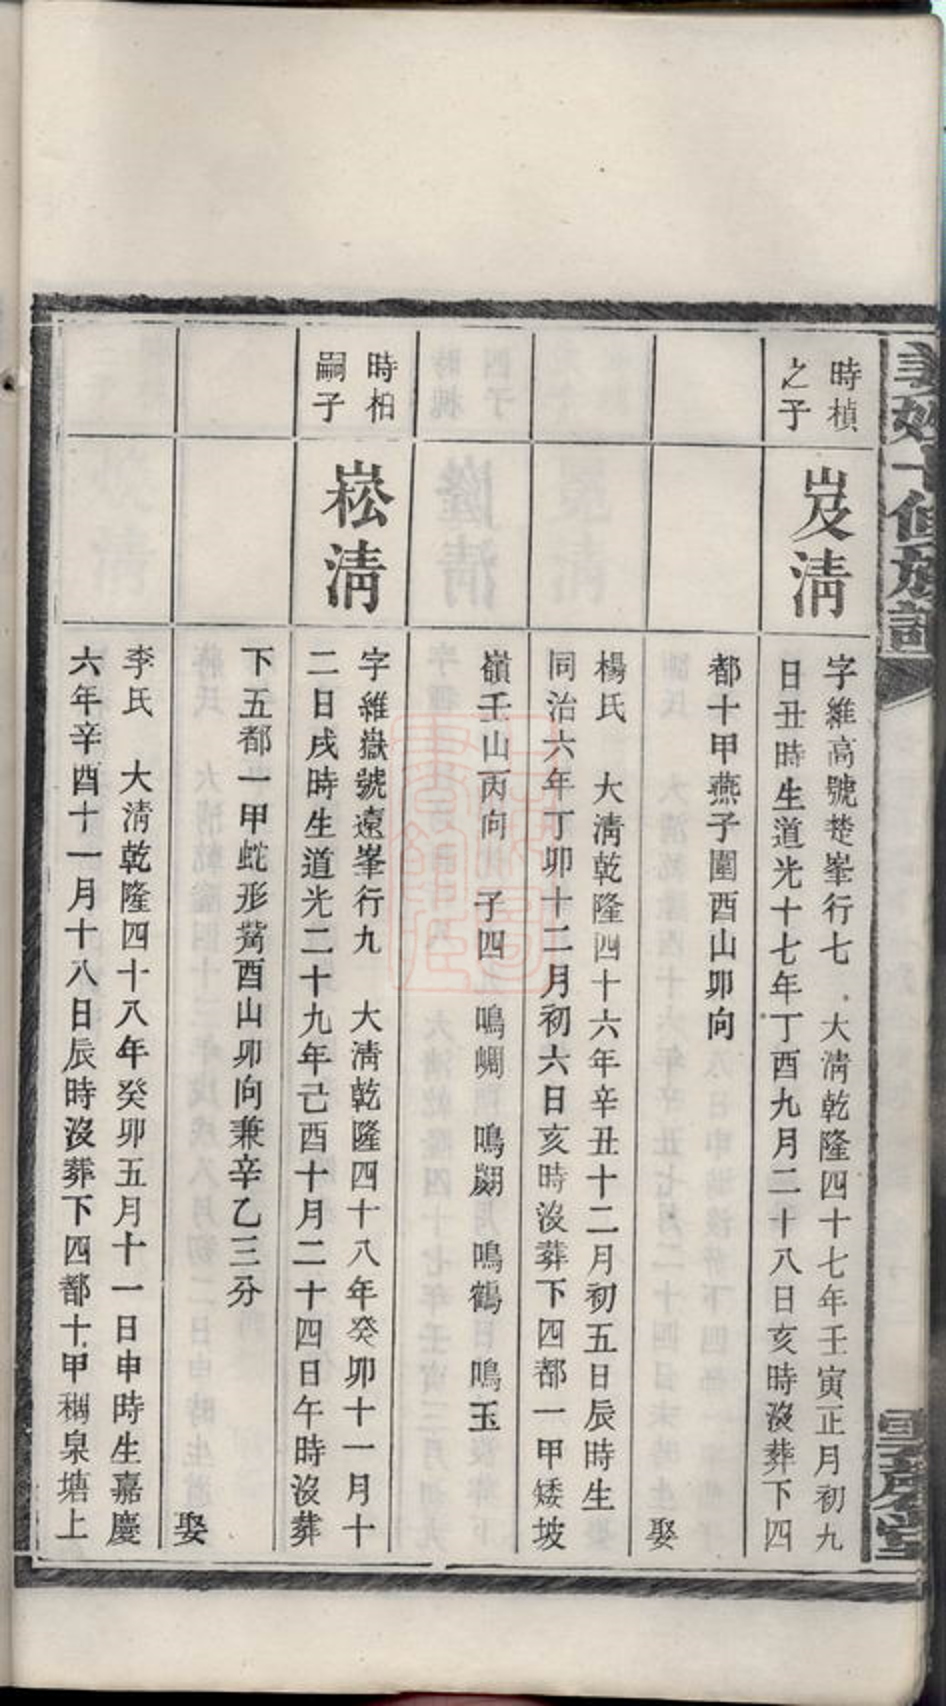 時楨
之子
岌淸
字維高號楚峯行七 大淸乾隆四十七年壬寅正月初九
日丑時生道光十七年丁酉九月二十八日亥時沒葬下四
都十甲燕子圍酉山卯向
娶
楊氏 大淸乾隆四十六年辛丑十二月初五日辰時生
同治六年丁卯十二月初六日亥時沒葬下四都一甲矮坡
嶺壬山丙向 子四 鳴鵰 鳴翽 鳴鶴 鳴玉
時柏
嗣子
崧淸
字維嶽號遠峯行九 大淸乾隆四十八年癸卯十一月十
二日戌時生道光二十九年己酉十月二十四日午時沒葬
下五都一甲蛇形嘴酉山卯向兼辛乙三分
娶
李氏 大淸乾隆四十八年癸卯五月十一日申時生嘉慶
六年辛酉十一月十八日辰時沒葬下四都十甲稠泉塘上